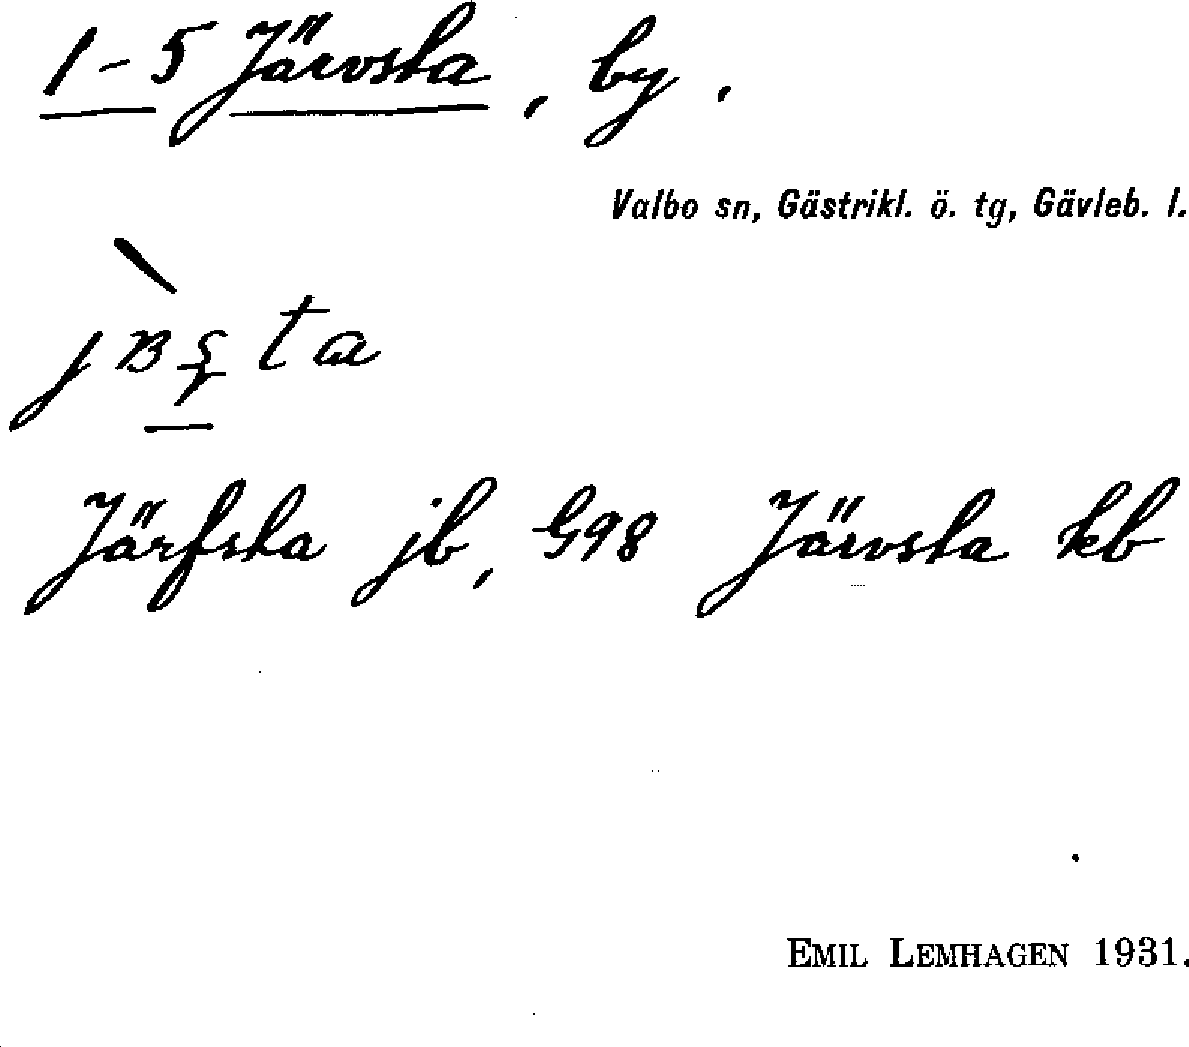 1-5 Järvsta, by.
Valbo sn, Gästrikl. ö. tg, Gävleb. l.
Järfsta jb, G98 Järvsta kb
EMIL LEMHAGEN 1931.